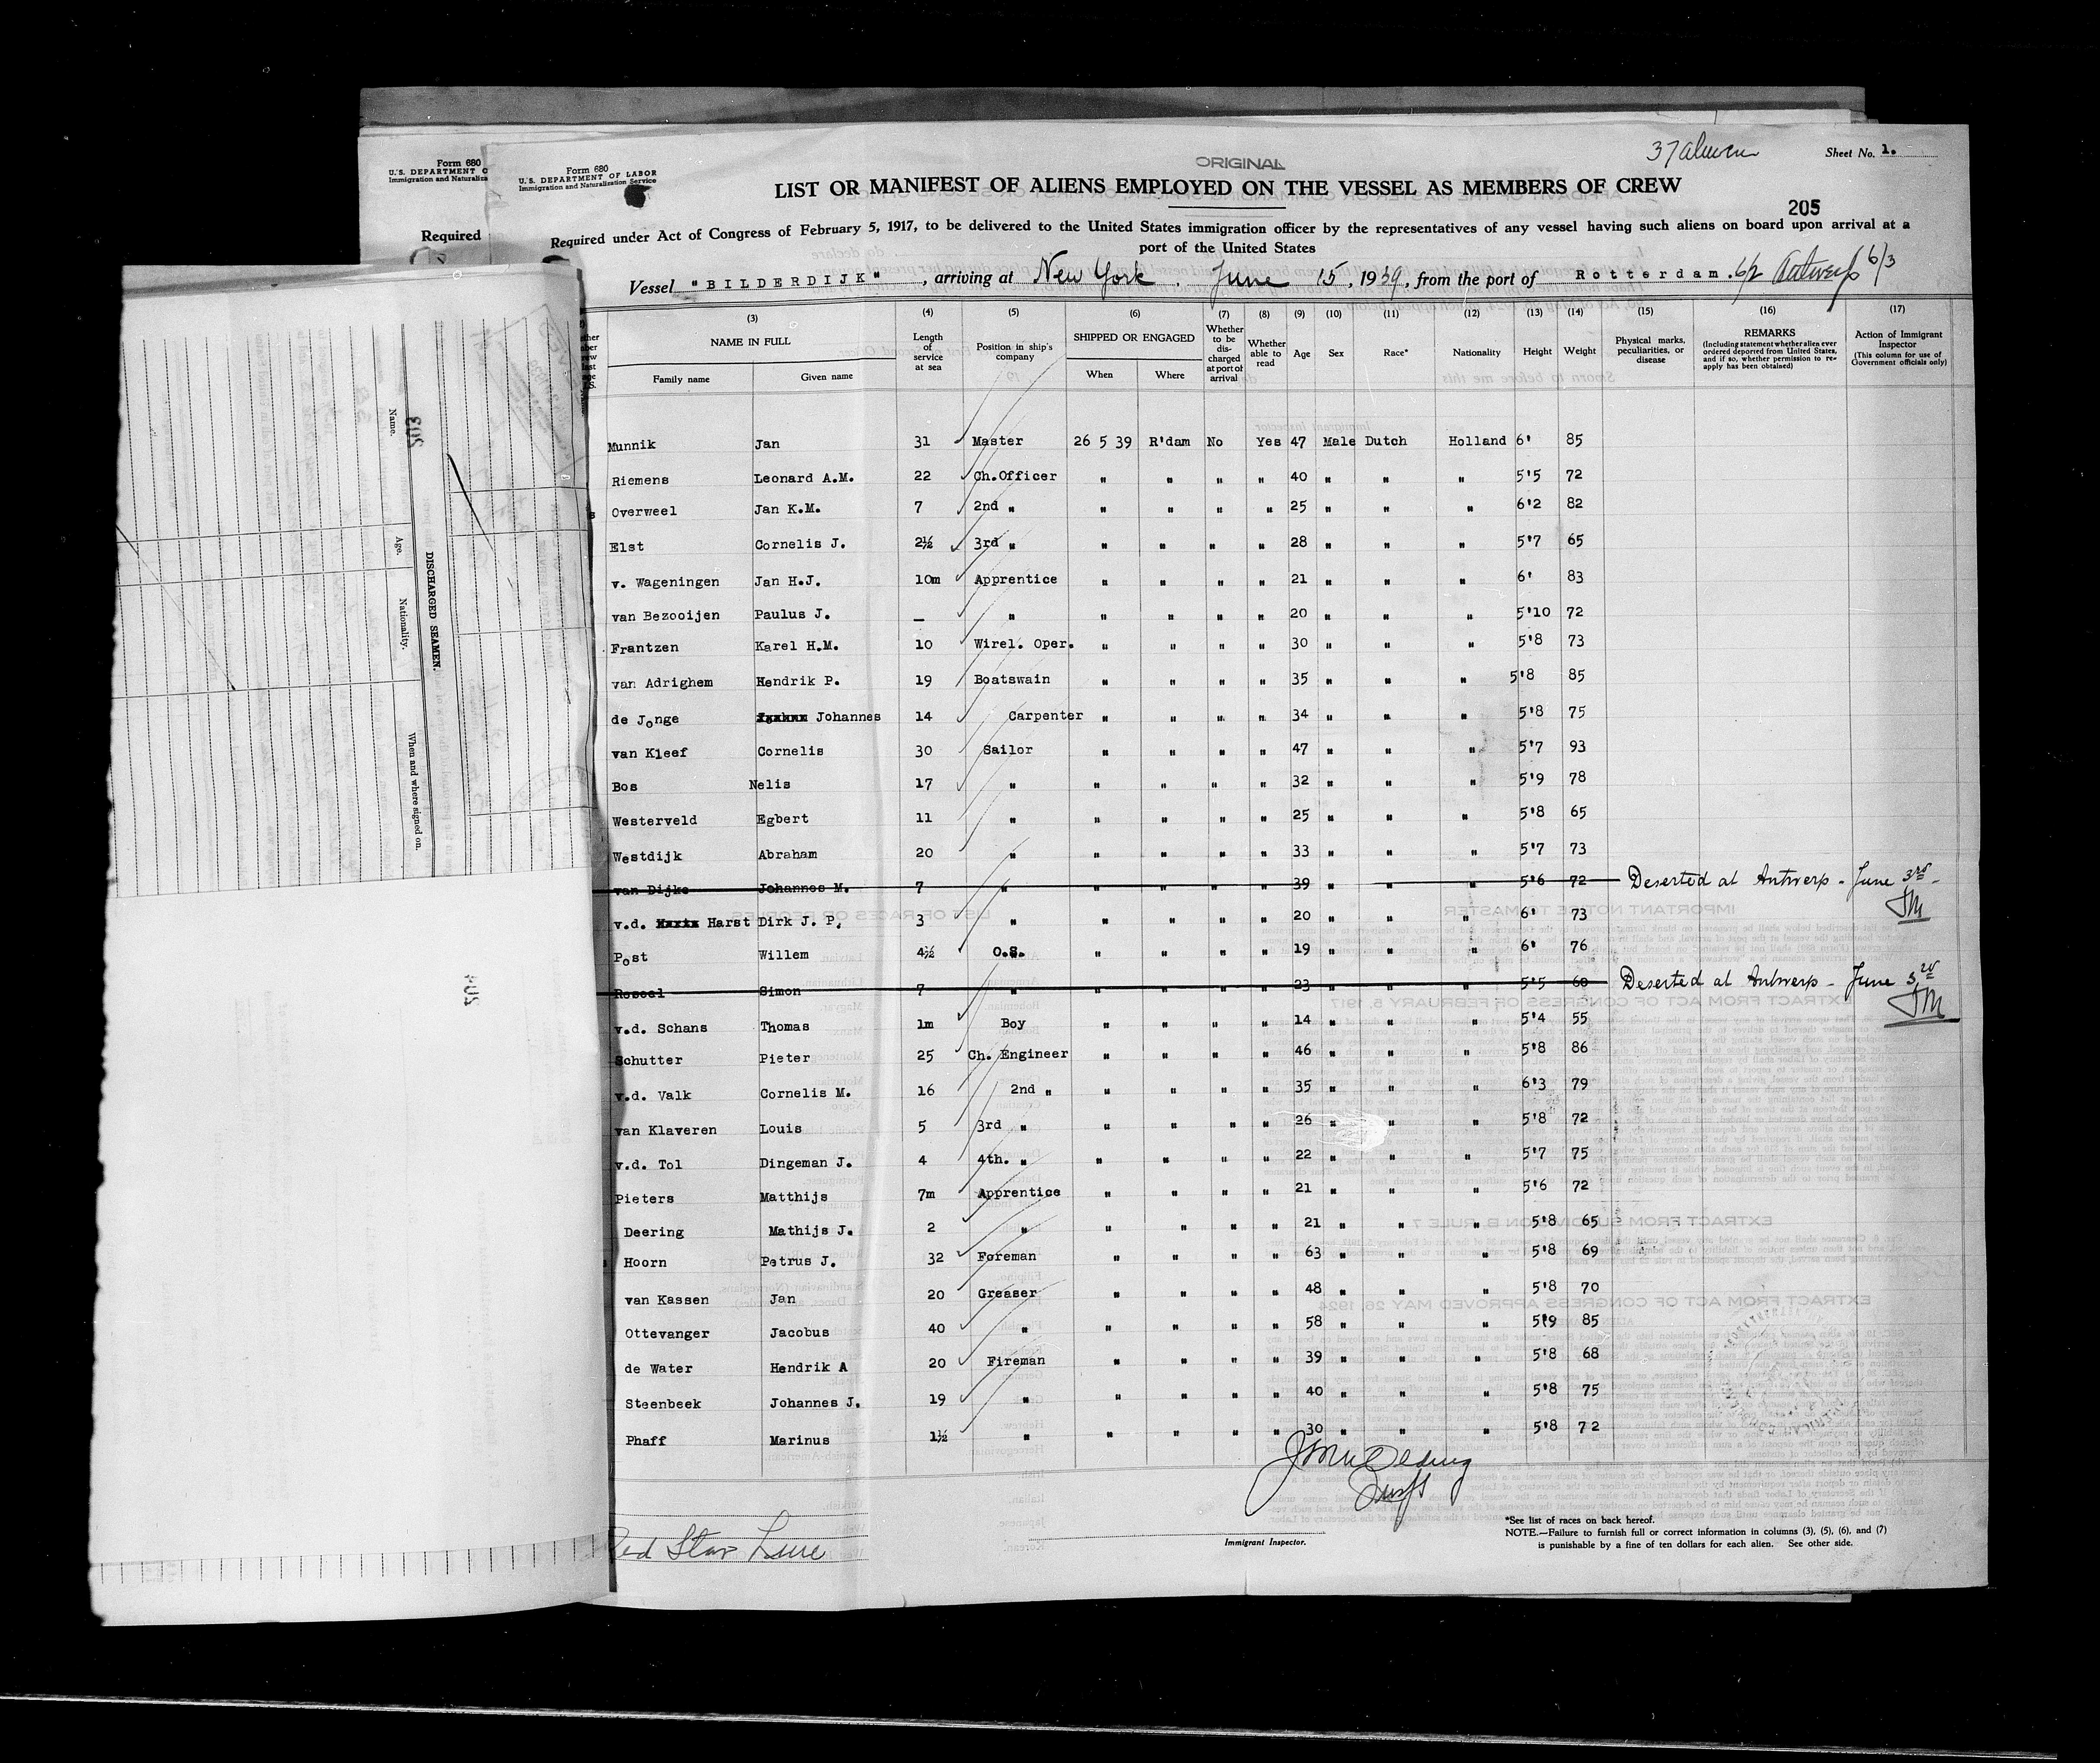 Form 680
U.S. DEPARTMENT O
Immigration and Naturaliza
Required
Form 680
U.S. DEPARTMENT OF LABOR
Immigration and Naturalization Service
ORIGINAL
Sheet No. 1.
LIST OR MANIFEST OF ALIENS EMPLOYED ON THE VESSEL AS MEMBERS OF CREW
205
Required under Act of Congress of February 5, 1917, to be delivered to the United States immigration officer by the representatives of any vessel having such aliens on board upon arrival at a
port of the United States
Vessel "BILDERDIJK", arriving at New York, June 15, 1939, from the port of Rotterdam. 6/2 Antwerp 6/3
(3) (4) (5) (6) (7) (8) (9) (10) (11) (12) (13) (14) (15) (16) (17)
NAME IN FULL
Family name Given name
Length of service at sea
Position in ship's company
SHIPPED OR ENGAGED
When Where
Whether to be discharged at port of arrival
Whether able to read
Age
Sex
Race*
Nationality
Height
Weight
Physical marks, peculiarities, or disease
REMARKS
(Including statement whether alien ever ordered deported from United States, and if so, whether permission to reapply has been obtained)
Action of Immigrant Inspector
(This column for use of Government officials only)
Munnik Jan 31 Master 26 5 39 R'dam No Yes 47 Male Dutch Holland 6' 85
Riemens Leonard A.M. 22 Ch.Officer " " " " 40 " " " 5'5 72
Overweel Jan K.M. 7 2nd " " " " " 25 " " " 6'2 82
Elst Cornelis J. 2½ 3rd " " " " " 28 " " " 5'7 65
v. Wageningen Jan H.J. 10m Apprentice " " " " 21 " " " 6' 83
van Bezooijen Paulus J. — " " " " " 20 " " " 5'10 72
Frantzen Karel H.M. 10 Wirel. Oper. " " " " 30 " " " 5'8 73
van Adrighem Hendrik P. 19 Boatswain " " " " 35 " " " 5'8 85
de Jonge Johannes 14 Carpenter " " " " 34 " " " 5'8 75
van Kleef Cornelis 30 Sailor " " " " 47 " " " 5'7 93
Bos Nelis 17 " " " " " 32 " " " 5'9 78
Westerveld Egbert 11 " " " " " 25 " " " 5'8 65
Westdijk Abraham 20 " " " " " 33 " " " 5'7 73
van Dijke Johannes M. 7 " " " " " 39 " " " 5'6 72 Deserted at Antwerp - June 3rd -
v.d. Harst Dirk J. P. 3 " " " " " 20 " " " 6' 73
Post Willem 4½ O.S. " " " " 19 " " " 6' 76
Simon 7 " " " " " 23 " " " 5'5 60 Deserted at Antwerp - June 3rd
v.d. Schans Thomas 1m Boy " " " " 14 " " " 5'4 55
Schutter Pieter 25 Ch. Engineer " " " " 46 " " " 5'8 86
v.d. Valk Cornelis M. 16 2nd " " " " " 35 " " " 6'3 79
van Klaveren Louis 5 3rd " " " " " 26 " " " 5'8 72
v.d. Tol Dingeman J. 4 4th. " " " " " 22 " " " 5'7 75
Pieters Matthijs 7m Apprentice " " " " 21 " " " 5'6 72
Deering Mathijs J. 2 " " " " " 21 " " " 5'8 65
Hoorn Petrus J. 32 Foreman " " " " 63 " " " 5'8 69
van Kassen Jan 20 Greaser " " " " 48 " " " 5'8 70
Ottevanger Jacobus 40 " " " " " 58 " " " 5'9 85
de Water Hendrik A 20 Fireman " " " " 39 " " " 5'8 68
Steenbeek Johannes J. 19 " " " " " 40 " " " 5'8 75
Phaff Marinus 1½ " " " " " 30 " " " 5'8 72
Red Star Line
Immigrant Inspector.
*See list of races on back hereof.
NOTE.—Failure to furnish full or correct information in columns (3), (5), (6), and (7)
is punishable by a fine of ten dollars for each alien. See other side.
DISCHARGED SEAMEN.
Name.
Age.
Nationality.
When and where signed on.
203
204